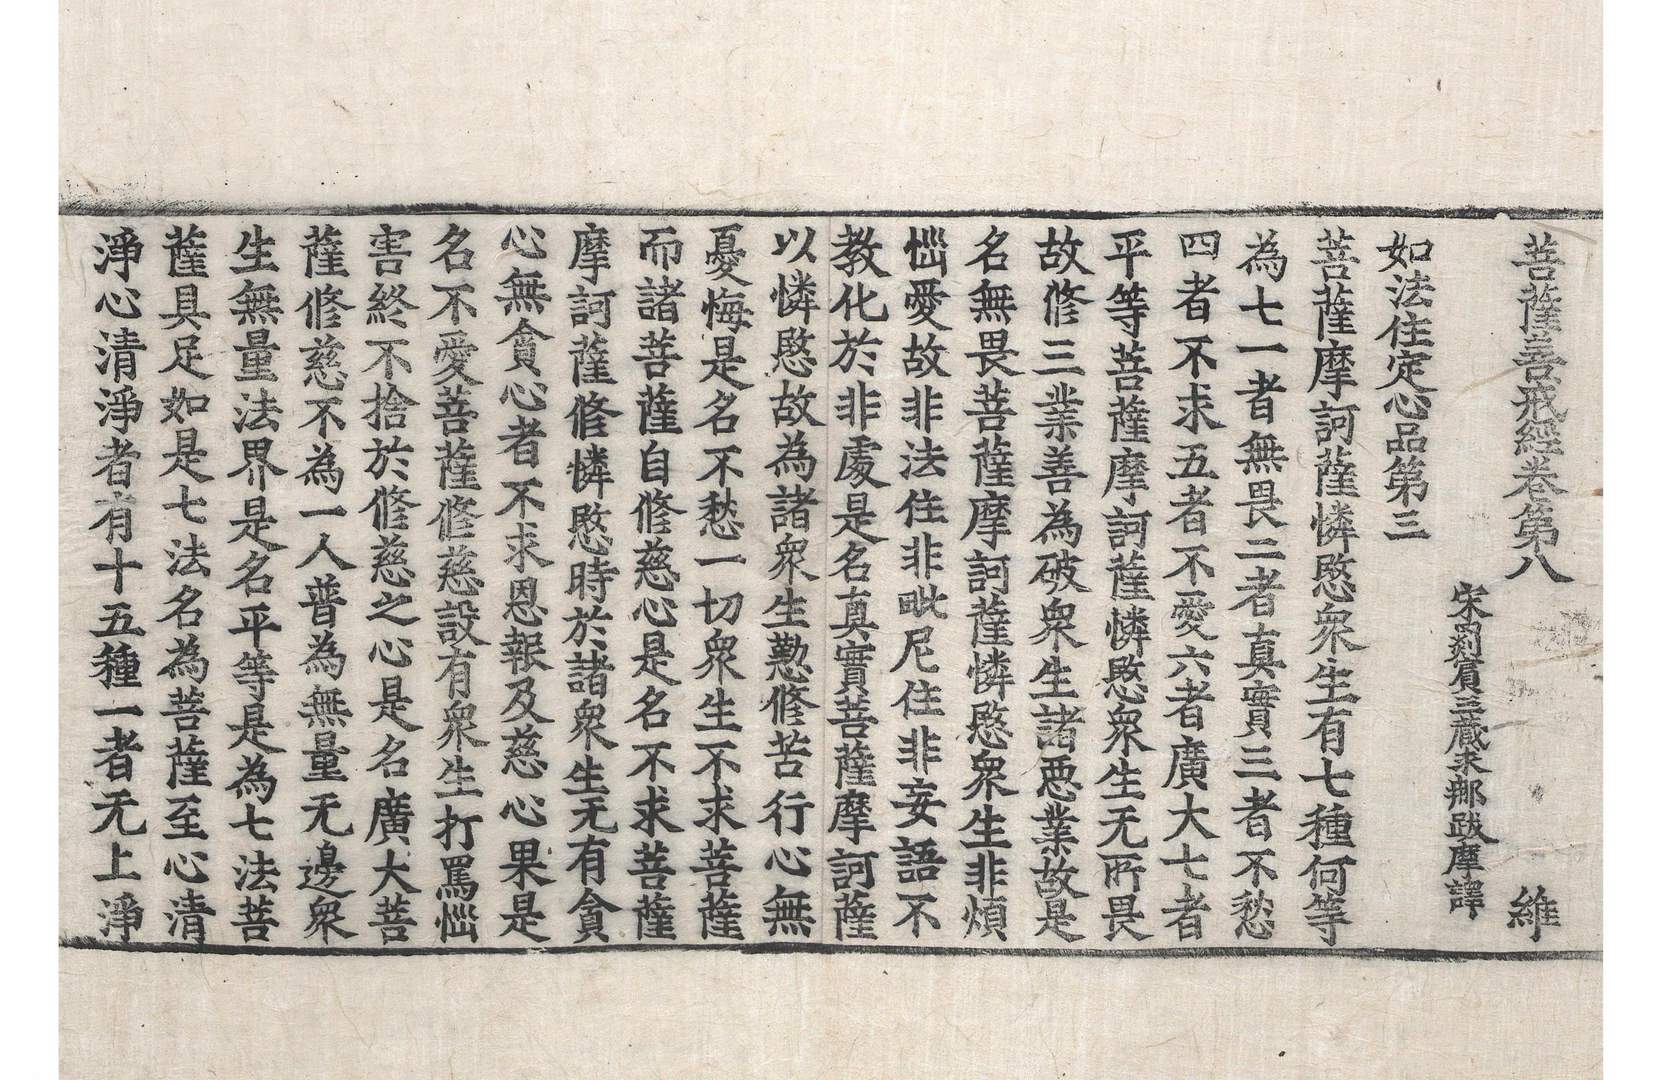 菩薩善戒經卷第八 維
宋罽賓三藏求那跋摩譯
如法住定心品第三
菩薩摩訶薩憐愍衆生有七種何等
為七一者無畏二者真實三者不愁
四者不求五者不愛六者廣大七者
平等菩薩摩訶薩憐愍衆生无所畏
故修三業善為破衆生諸惡業故是
名無畏菩薩摩訶薩憐愍衆生非煩
惱愛故非法住非毗尼住非妄語不
教化於非處是名真實菩薩摩訶薩
以憐愍故為諸衆生懃修苦行心無
憂悔是名不愁一切衆生不求菩薩
而諸菩薩自修慈心是名不求菩薩
摩訶薩修憐愍時於諸衆生无有貪
心無貪心者不求恩報及慈心果是
名不愛菩薩修慈設有衆生打罵惱
害終不捨於修慈之心是名廣大菩
薩修慈不為一人普為無量无邊衆
生無量法界是名平等是為七法菩
薩具足如是七法名為菩薩至心清
淨心清淨者有十五種一者无上淨